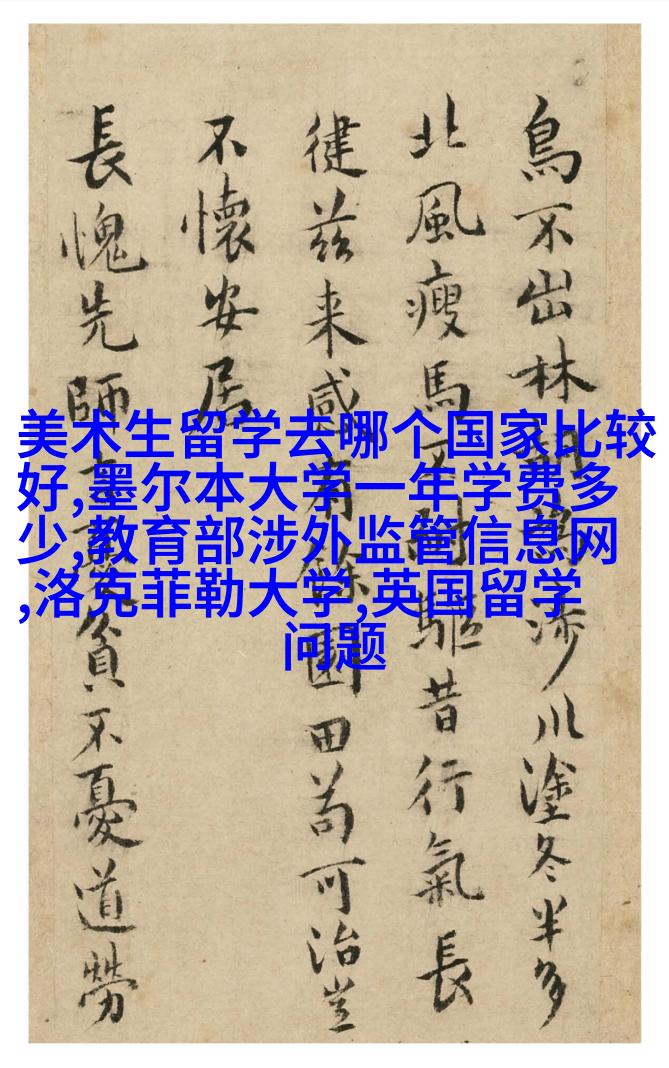 鳥不出林胡為涉川塗冬半多
北風瘦馬不耐驅昔行氣長
徤茲来感有餘園田苟可治豈
不懷安居
長愧先師貧不憂道勞
美术生留学去哪个国家比较
好,墨尔本大学一年学费多
少,教育部涉外监管信息网
,洛克菲勒大学,英国留学
问题